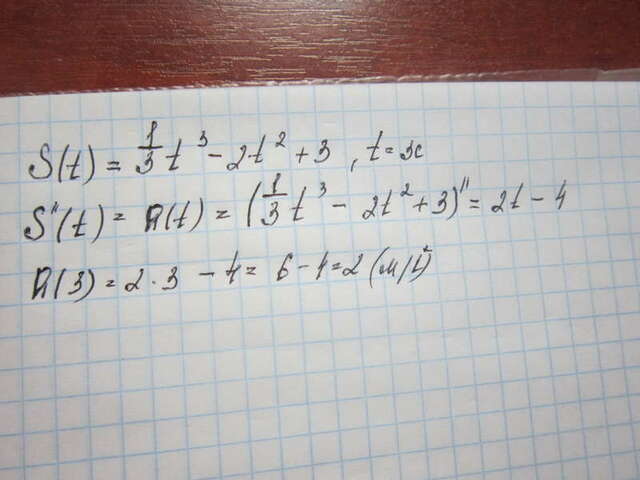 S(t) = 1/3 t³ - 2t² + 3 , t = 3c
S''(t) = a(t) = (1/3 t³ - 2t² + 3)'' = 2t - 4
a(3) = 2 · 3 - 4 = 6 - 4 = 2 (м/с²)